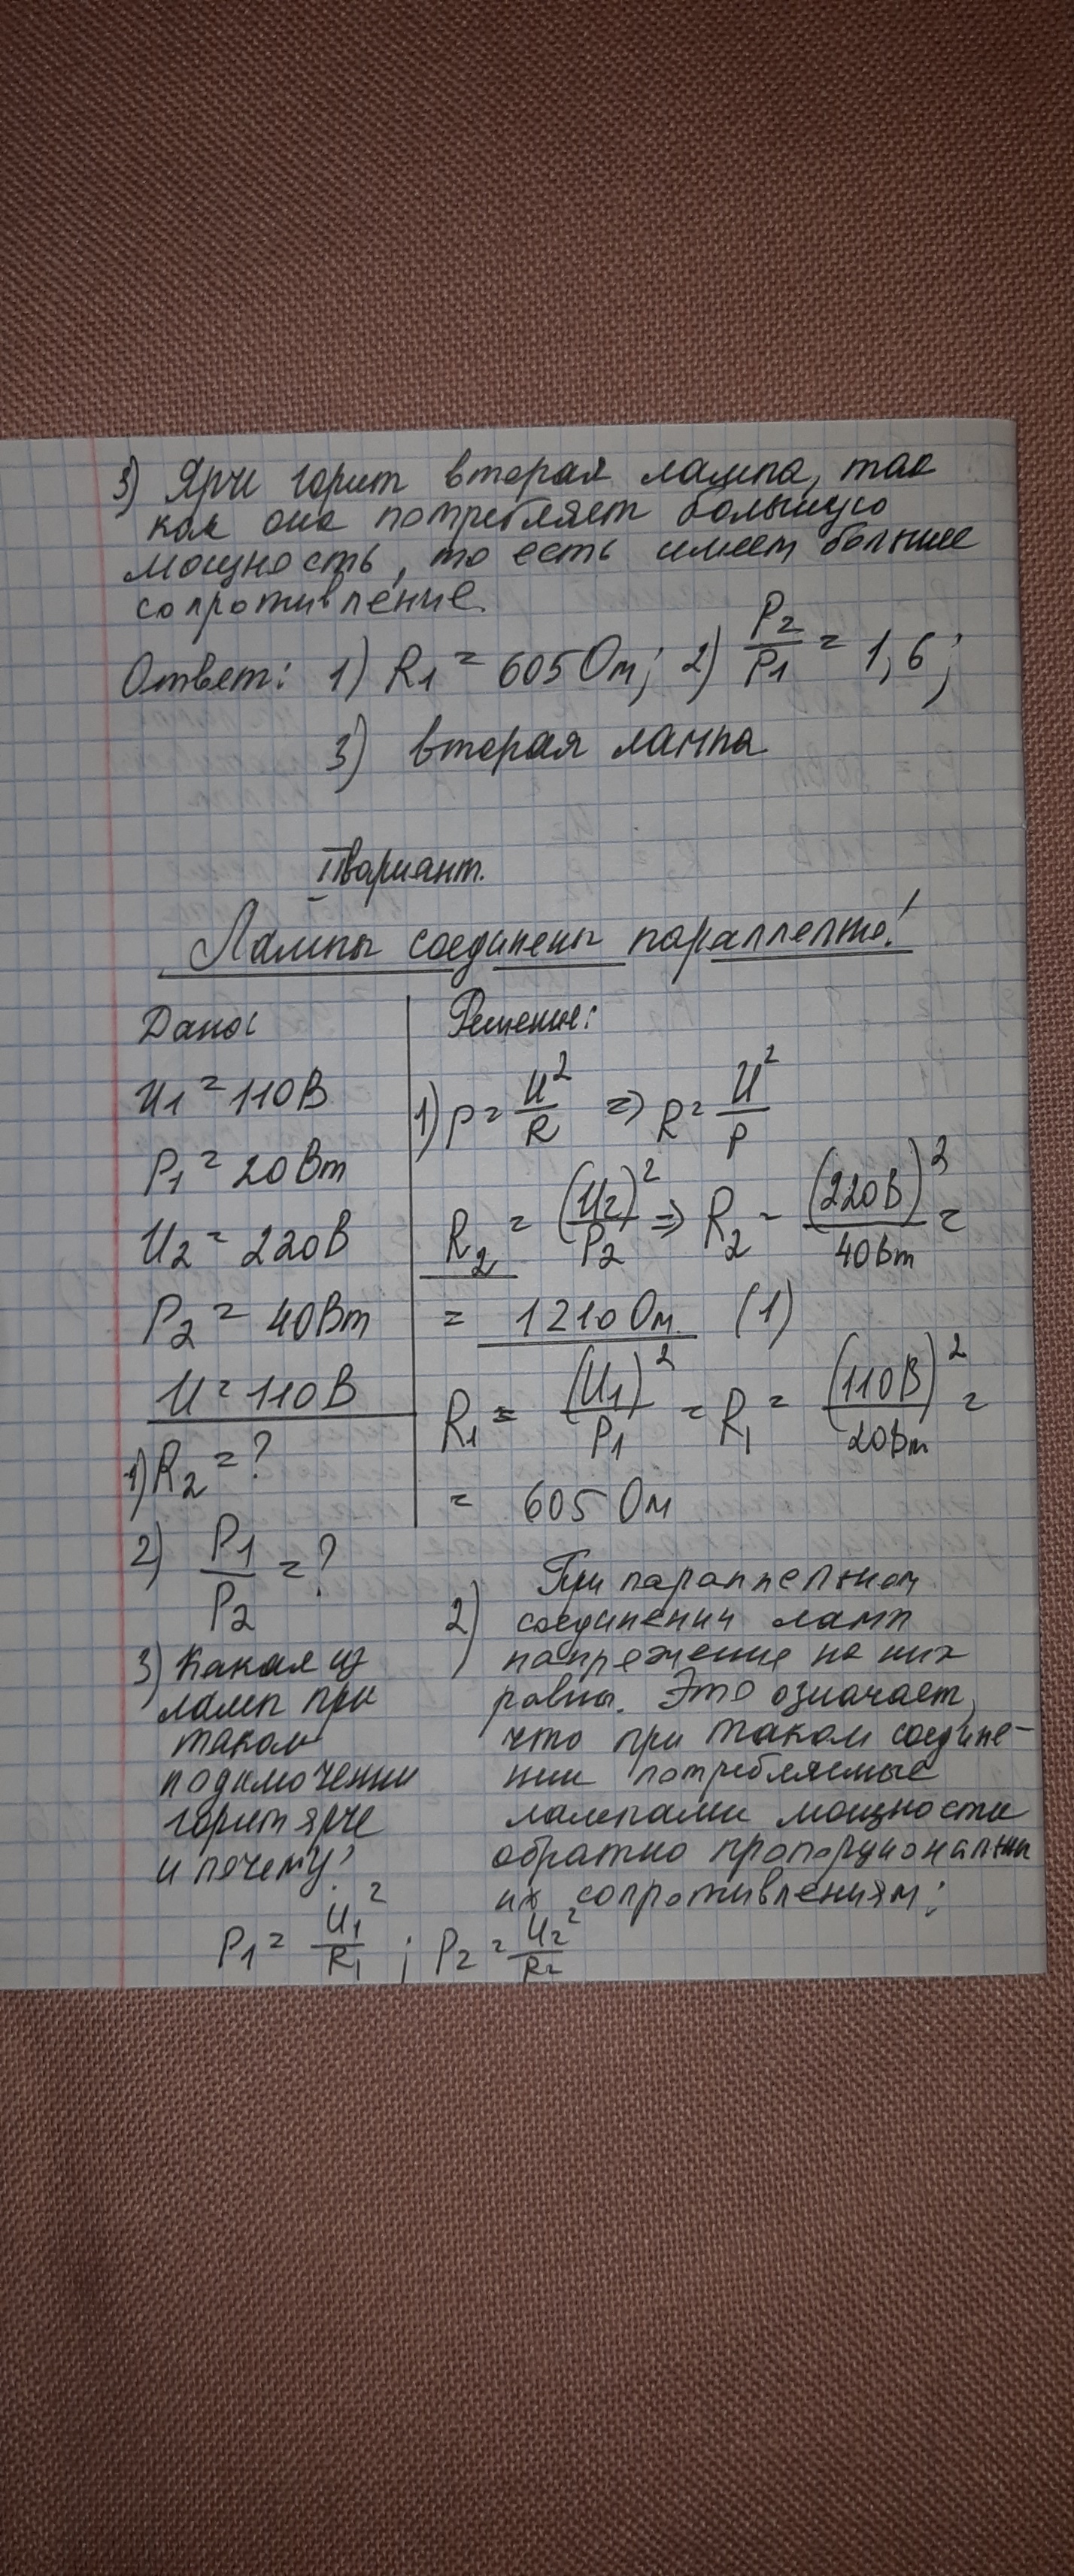 3) Ярче горит вторая лампа, так
как она потребляет большую
мощность, то есть имеет большее
сопротивление.
Ответ: 1) R₁ = 605 Ом; 2) P₂/P₁ = 1,6;
3) вторая лампа
II вариант.
Лампы соединены параллельно!
Дано:
U₁ = 110В
P₁ = 20Вт
U₂ = 220В
P₂ = 40Вт
U = 110В
1) R₂ = ?
2) P₁/P₂ = ?
3) Какая из
ламп при
таком
подключении
горит ярче
и почему?
Решение:
1) P = U²/R => R = U²/P
R₂ = (U₂)²/P₂ => R₂ = (220В)²/40Вт =
= 1210 Ом (1)
R₁ = (U₁)²/P₁ = R₁ = (110В)²/20Вт =
= 605 Ом
2) При параллельном
соединении ламп
напряжение на них
равны. Это означает,
что при таком соедине-
нии потребляемые
лампами мощности
обратно пропорциональны
их сопротивлениям:
P₁ = U₁²/R₁ ; P₂ = U₂²/R₂